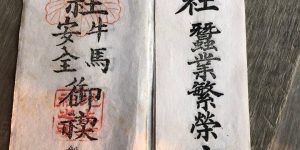 社蠶業繁榮
社牛馬安全御禊